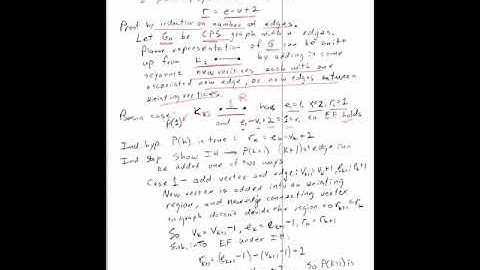 r = e-v+2
Proof by induction on number of edges.
Let Gn be CPS graph with n edges.
Planar representation of G can be built
up from K2 by adding in some
sequence new vertices each with one
associated new edge, or new edges between
existing vertices.
Basis case K2 1 R has e=1, v=2, r=1
P(1) and e1-v1+2=1=r1 so EF holds
Ind. hyp. P(k) is true = rk = ek-vk+2
Ind step Show IH → P(k+1) (k+1)st edge can
be added one of two ways
Case 1 - add vertex and edge: vk+1=vk+1, ek+1=ek+1
New vertex is added into an existing
region, and new edge connecting vertex
to graph doesn't divide the region → rk+1=rk
So vk=vk+1-1, ek=ek+1-1, rk=rk+1
Sub. into EF under IH:
rk+1=(ek+1-1)-(vk+1-1)+2
So P(k+1) is